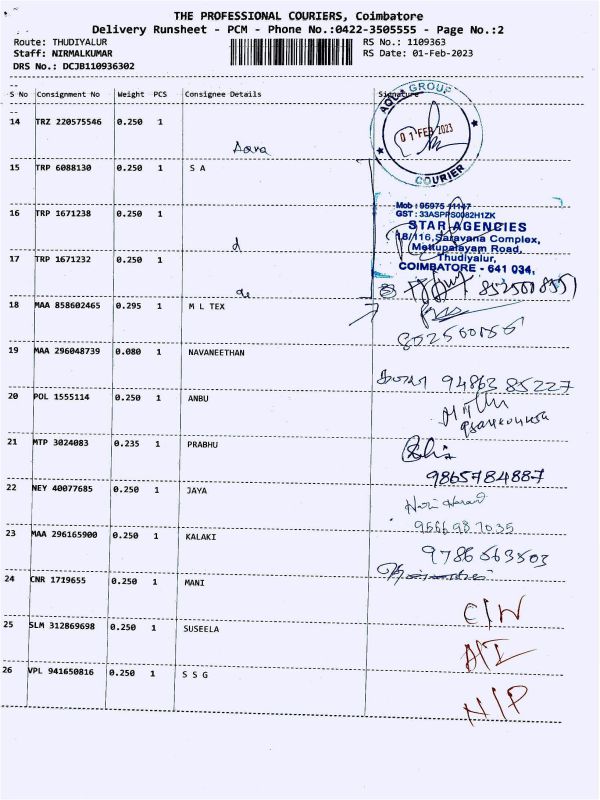 THE PROFESSIONAL COURIERS, Coimbatore
Delivery Runsheet - PCM - Phone No.:0422-3505555 - Page No.:2
Route: THUDIYALUR RS No.: 1109363
Staff: NIRMALKUMAR RS Date: 01-Feb-2023
DRS No.: DCJB110936302
S No Consignment No Weight PCS Consignee Details Signature
AQUA GROUP
14 TRZ 220575546 0.250 1
01 FEB 2023
Aqva
COURIER
15 TRP 6088130 0.250 1 S A
Mob : 95975 11147
GST : 33ASPPS0082H1ZK
16 TRP 1671238 0.250 1
STAR AGENCIES
18/116, Saravana Complex,
Mettupalayam Road,
Thudiyalur,
COIMBATORE - 641 034.
17 TRP 1671232 0.250 1
18 MAA 858602465 0.295 1 M L TEX
19 MAA 296048739 0.080 1 NAVANEETHAN
94863 85227
20 POL 1555114 0.250 1 ANBU
21 MTP 3024083 0.235 1 PRABHU
9865784887
22 NEY 40077685 0.250 1 JAYA
9566987035
23 MAA 296165900 0.250 1 KALAKI
9786563503
24 CNR 1719655 0.250 1 MANI
C/N
25 SLM 312869698 0.250 1 SUSEELA
A/I
26 VPL 941650816 0.250 1 S S G
N/P